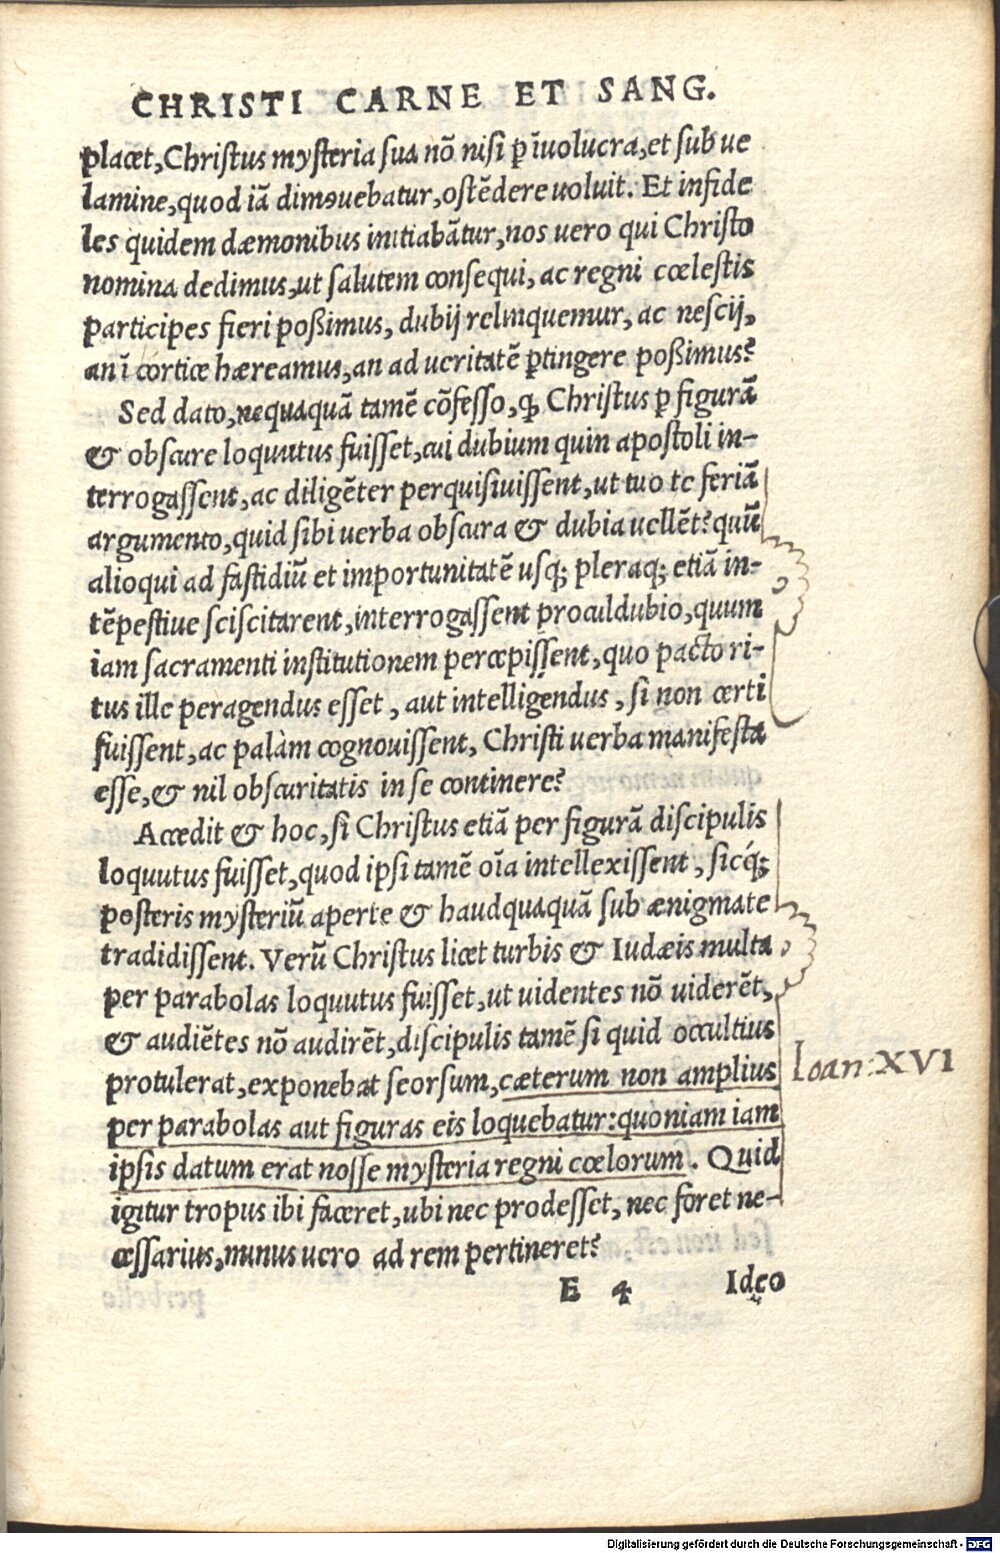 CHRISTI CARNE ET SANG.
placet, Christus mysteria sua nō nisi ꝑ īuolucra, et sub ue
lamine, quod iā dimouebatur, ostēdere uoluit. Et infide
les quidem dæmonibus initiabātur, nos uero qui Christo
nomina dedimus, ut salutem consequi, ac regni cœlestis
participes fieri poßimus, dubij relinquemur, ac nescij,
an ī cortice hæreamus, an ad ueritatē ꝑtingere poßimus?
Sed dato, nequaquā tamē cōfesso, ꝙ Christus ꝑ figurā
& obscure loquutus fuisset, cui dubium quin apostoli in-
terrogassent, ac diligēter perquisiuissent, ut tuo te feriā
argumento, quid sibi uerba obscura & dubia uellēt? quū
alioqui ad fastidiū et importunitatē usq; pleraq; etiā in-
tēpestiue sciscitarent, interrogassent proculdubio, quum
iam sacramenti institutionem percepissent, quo pacto ri-
tus ille peragendus esset, aut intelligendus, si non certi
fuissent, ac palàm cognouissent, Christi uerba manifesta
esse, & nil obscuritatis in se continere?
Accedit & hoc, si Christus etiā per figurā discipulis
loquutus fuisset, quod ipsi tamē oīa intellexissent, sicq́;
posteris mysteriū aperte & haudquaquā sub ænigmate
tradidissent. Verū Christus licet turbis & Iudæis multa
per parabolas loquutus fuisset, ut uidentes nō uiderēt,
& audiētes nō audirēt, discipulis tamē si quid occultius
protulerat, exponebat seorsum, cæterum non amplius
Ioan: XVI
per parabolas aut figuras eis loquebatur: quoniam iam
ipsis datum erat nosse mysteria regni cœlorum. Quid
igitur tropus ibi faceret, ubi nec prodesset, nec foret ne-
cessarius, minus uero ad rem pertineret?
E 4 Ideo
Digitalisierung gefördert durch die Deutsche Forschungsgemeinschaft - DFG